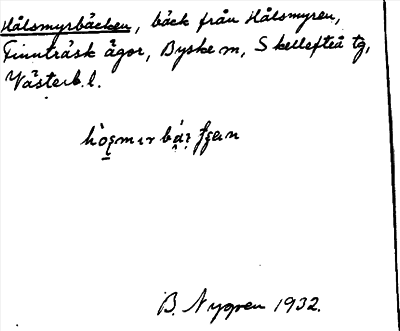 Hålsmyrbäcken, bäck från Hålsmyren,
Finnträsk ägor, Byske sn, Skellefteå tg,
Västerb. l.
B. Nygren 1932.